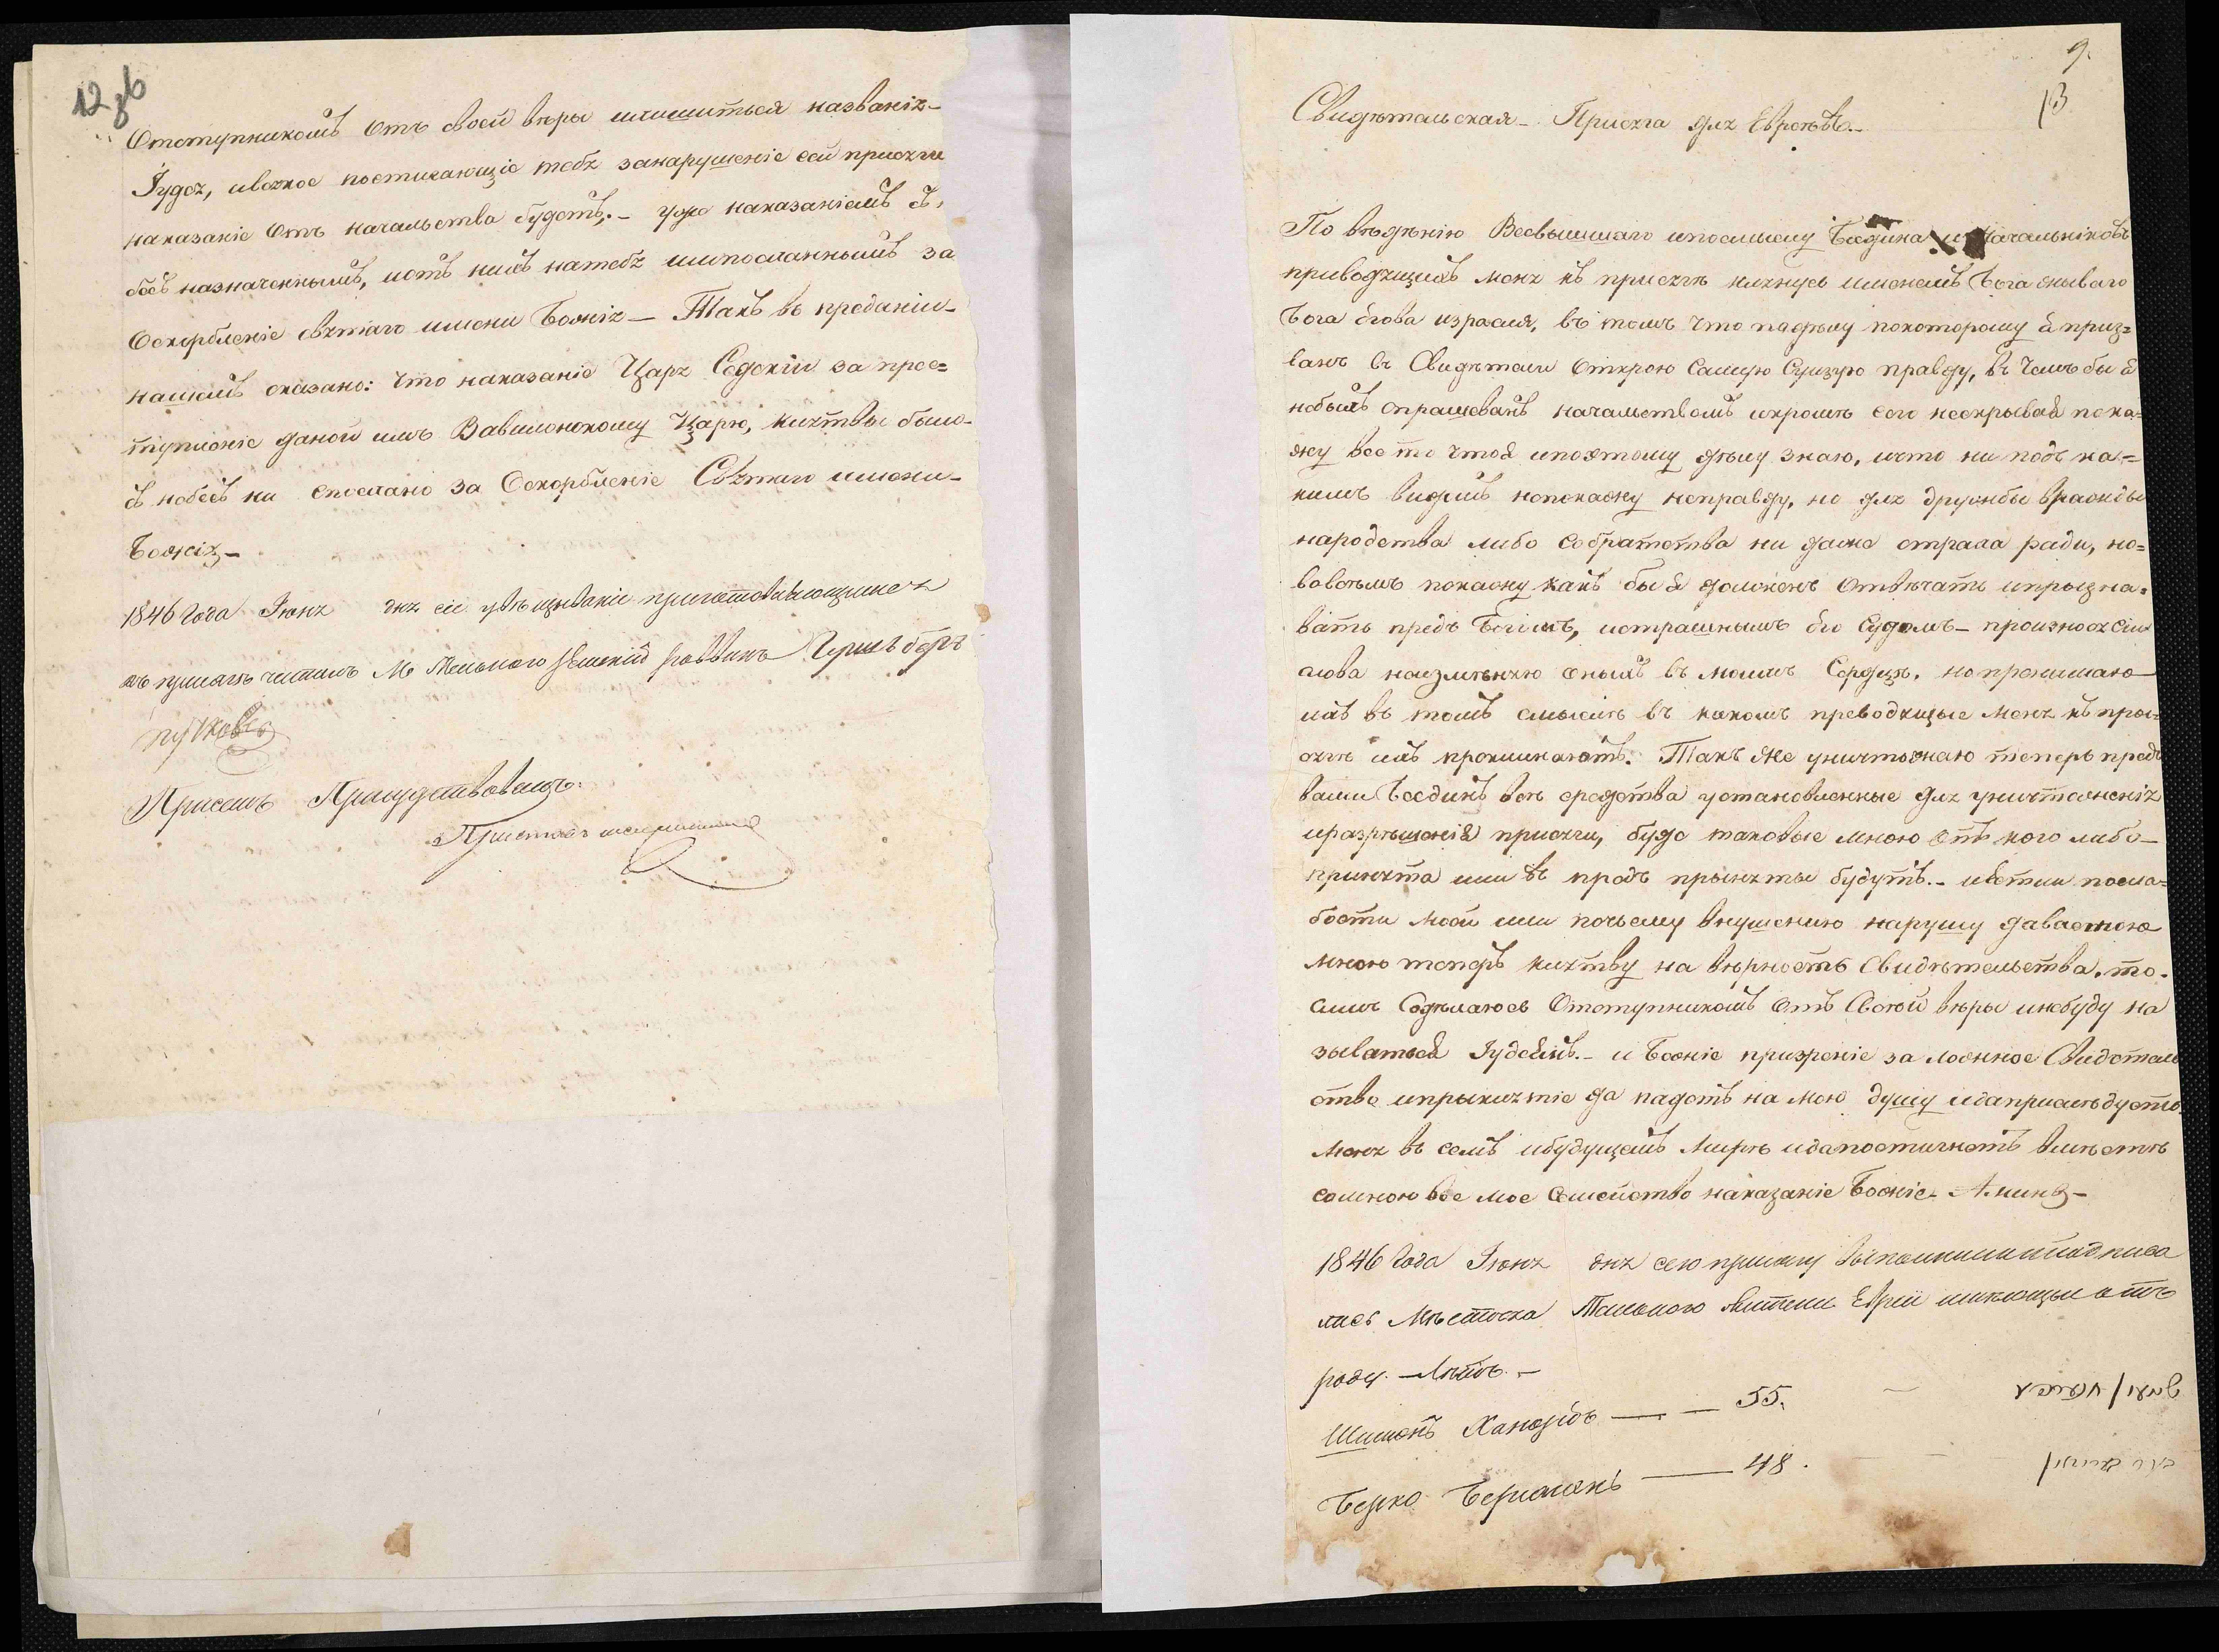 12 об
Отступникомъ отъ своей веры илишиться названія-
Іудея, ивсякое постигающіе тебя занарушеніе сей присяги
наказаніе Отъ начальства будетъ.- уже наказаніемъ съ,
бесъ назначеннымъ, иотъ нихъ натебя ниспосланнымъ за
Оскорбленіе святаго имени Божія - Такъ въ преданіи-
нашемъ сказано: что наказаніе Царя Седекіи за прес=
тупленіе даной имъ Вавилонскому Царю, клятвы было-
съ небесъ ни спослано за Оскорбленіе Святаго имени-
Божія,-
1846 года Іюня дня сіе увѣщываніе приготовляющимся
къ присягѣ читалъ М Тельного Раввинъ Гершъ беръ
При семъ Присудствовалъ.
Приставъ
9.
13
Свидѣтельская - Присяга для Евреевъ.-
По вѣдѣнію Всевышшаго ипосмыслу Беєдина и Начальниковъ
приводящихъ меня къ присягѣ клянусь именемъ Бога живаго
Бога бгова израеля, въ томъ что подѣлу покоторому я приз=
ванъ въ Свидѣтели Открою Самую Сущую правду, въ чемъ бы я
небылъ спрашеванъ начальствомъ икромѣ сего нескрывая пока=
жу все то что я ипоэтому дѣлу знаю, ичто ни подъ ка=
кимъ видомъ непокажу неправду, не для дружбы вражды
народства либо Собратства ни даже страха ради, но=
вовсѣмъ покажу какъ бы я долженъ Отвѣчать ипрызна=
вать предъ Богомъ, истрашнымъ его Судомъ - произнося Сіи
слова неизмѣняю оныхъ въ моемъ Сердцѣ, но пренимаю
ихъ въ томъ смыслѣ въ какомъ преводящые меня къ при=
сягѣ ихъ пренимаютъ. Такъ же уничтожаю теперь предъ
вами Беєдинъ всѣ средства установленные для уничтоженія
иразрѣшенія присяги, буде таковые мною отъ кого либо-
принята или въ предъ прыняты будутъ.- иестли посла=
бости моей или почьему внушенію нарушу даваемою
мною теперь клятву на вѣрность Свидетельства, то.
самъ Содѣлаюсь Отступникомъ Отъ Своей вѣры инебуду на
зываться Іудеямъ.- и Божіе призреніе за ложное Свидетель
ство ипрыклятіе да падетъ на мою душу идапреслѣдуетъ
меня въ семъ ибудущемъ Мирѣ идапостигнетъ вмѣстѣ
сомною все мое Семейство наказаніе Божіе. Аминь-
1846 года Іюня дня сею присягу выполнили иподписа
лись Мѣстечка Тельного жители Евреи имеющыи отъ
роду. - Лѣтъ. -
Шимонъ - - 55.
Берко Берманъ - 48.